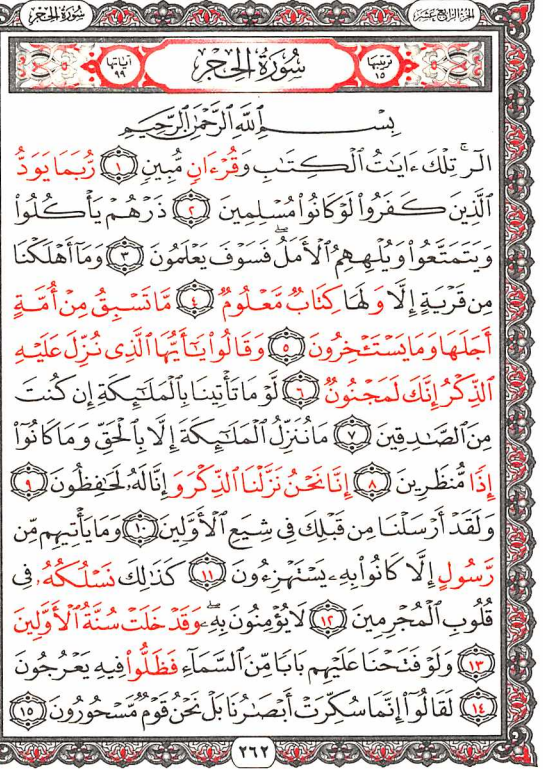 سُورَةُ الحِجر
الجزء الرابع عشر
ترتيبها ١٥
سُورَةُ الحِجر
آياتها ٩٩
بِسْمِ ٱللَّهِ ٱلرَّحْمَٰنِ ٱلرَّحِيمِ
الٓر ۚ تِلْكَ ءَايَٰتُ ٱلْكِتَٰبِ وَقُرْءَانٍ مُّبِينٍ ١ رُّبَمَا يَوَدُّ
ٱلَّذِينَ كَفَرُوا۟ لَوْ كَانُوا۟ مُسْلِمِينَ ٢ ذَرْهُمْ يَأْكُلُوا۟
وَيَتَمَتَّعُوا۟ وَيُلْهِهِمُ ٱلْأَمَلُ ۖ فَسَوْفَ يَعْلَمُونَ ٣ وَمَآ أَهْلَكْنَا
مِن قَرْيَةٍ إِلَّا وَلَهَا كِتَابٌ مَّعْلُومٌ ٤ مَّا تَسْبِقُ مِنْ أُمَّةٍ
أَجَلَهَا وَمَا يَسْتَـْٔخِرُونَ ٥ وَقَالُوا۟ يَٰٓأَيُّهَا ٱلَّذِى نُزِّلَ عَلَيْهِ
ٱلذِّكْرُ إِنَّكَ لَمَجْنُونٌ ٦ لَّوْ مَا تَأْتِينَا بِٱلْمَلَٰٓئِكَةِ إِن كُنتَ
مِنَ ٱلصَّٰدِقِينَ ٧ مَا نُنَزِّلُ ٱلْمَلَٰٓئِكَةَ إِلَّا بِٱلْحَقِّ وَمَا كَانُوٓا۟
إِذًا مُّنظَرِينَ ٨ إِنَّا نَحْنُ نَزَّلْنَا ٱلذِّكْرَ وَإِنَّا لَهُۥ لَحَٰفِظُونَ ٩
وَلَقَدْ أَرْسَلْنَا مِن قَبْلِكَ فِى شِيَعِ ٱلْأَوَّلِينَ ١٠ وَمَا يَأْتِيهِم مِّن
رَّسُولٍ إِلَّا كَانُوا۟ بِهِۦ يَسْتَهْزِءُونَ ١١ كَذَٰلِكَ نَسْلُكُهُۥ فِى
قُلُوبِ ٱلْمُجْرِمِينَ ١٢ لَا يُؤْمِنُونَ بِهِۦ ۖ وَقَدْ خَلَتْ سُنَّةُ ٱلْأَوَّلِينَ
١٣ وَلَوْ فَتَحْنَا عَلَيْهِم بَابًا مِّنَ ٱلسَّمَآءِ فَظَلُّوا۟ فِيهِ يَعْرُجُونَ
١٤ لَقَالُوٓا۟ إِنَّمَا سُكِّرَتْ أَبْصَٰرُنَا بَلْ نَحْنُ قَوْمٌ مَّسْحُورُونَ ١٥
٢٦٢